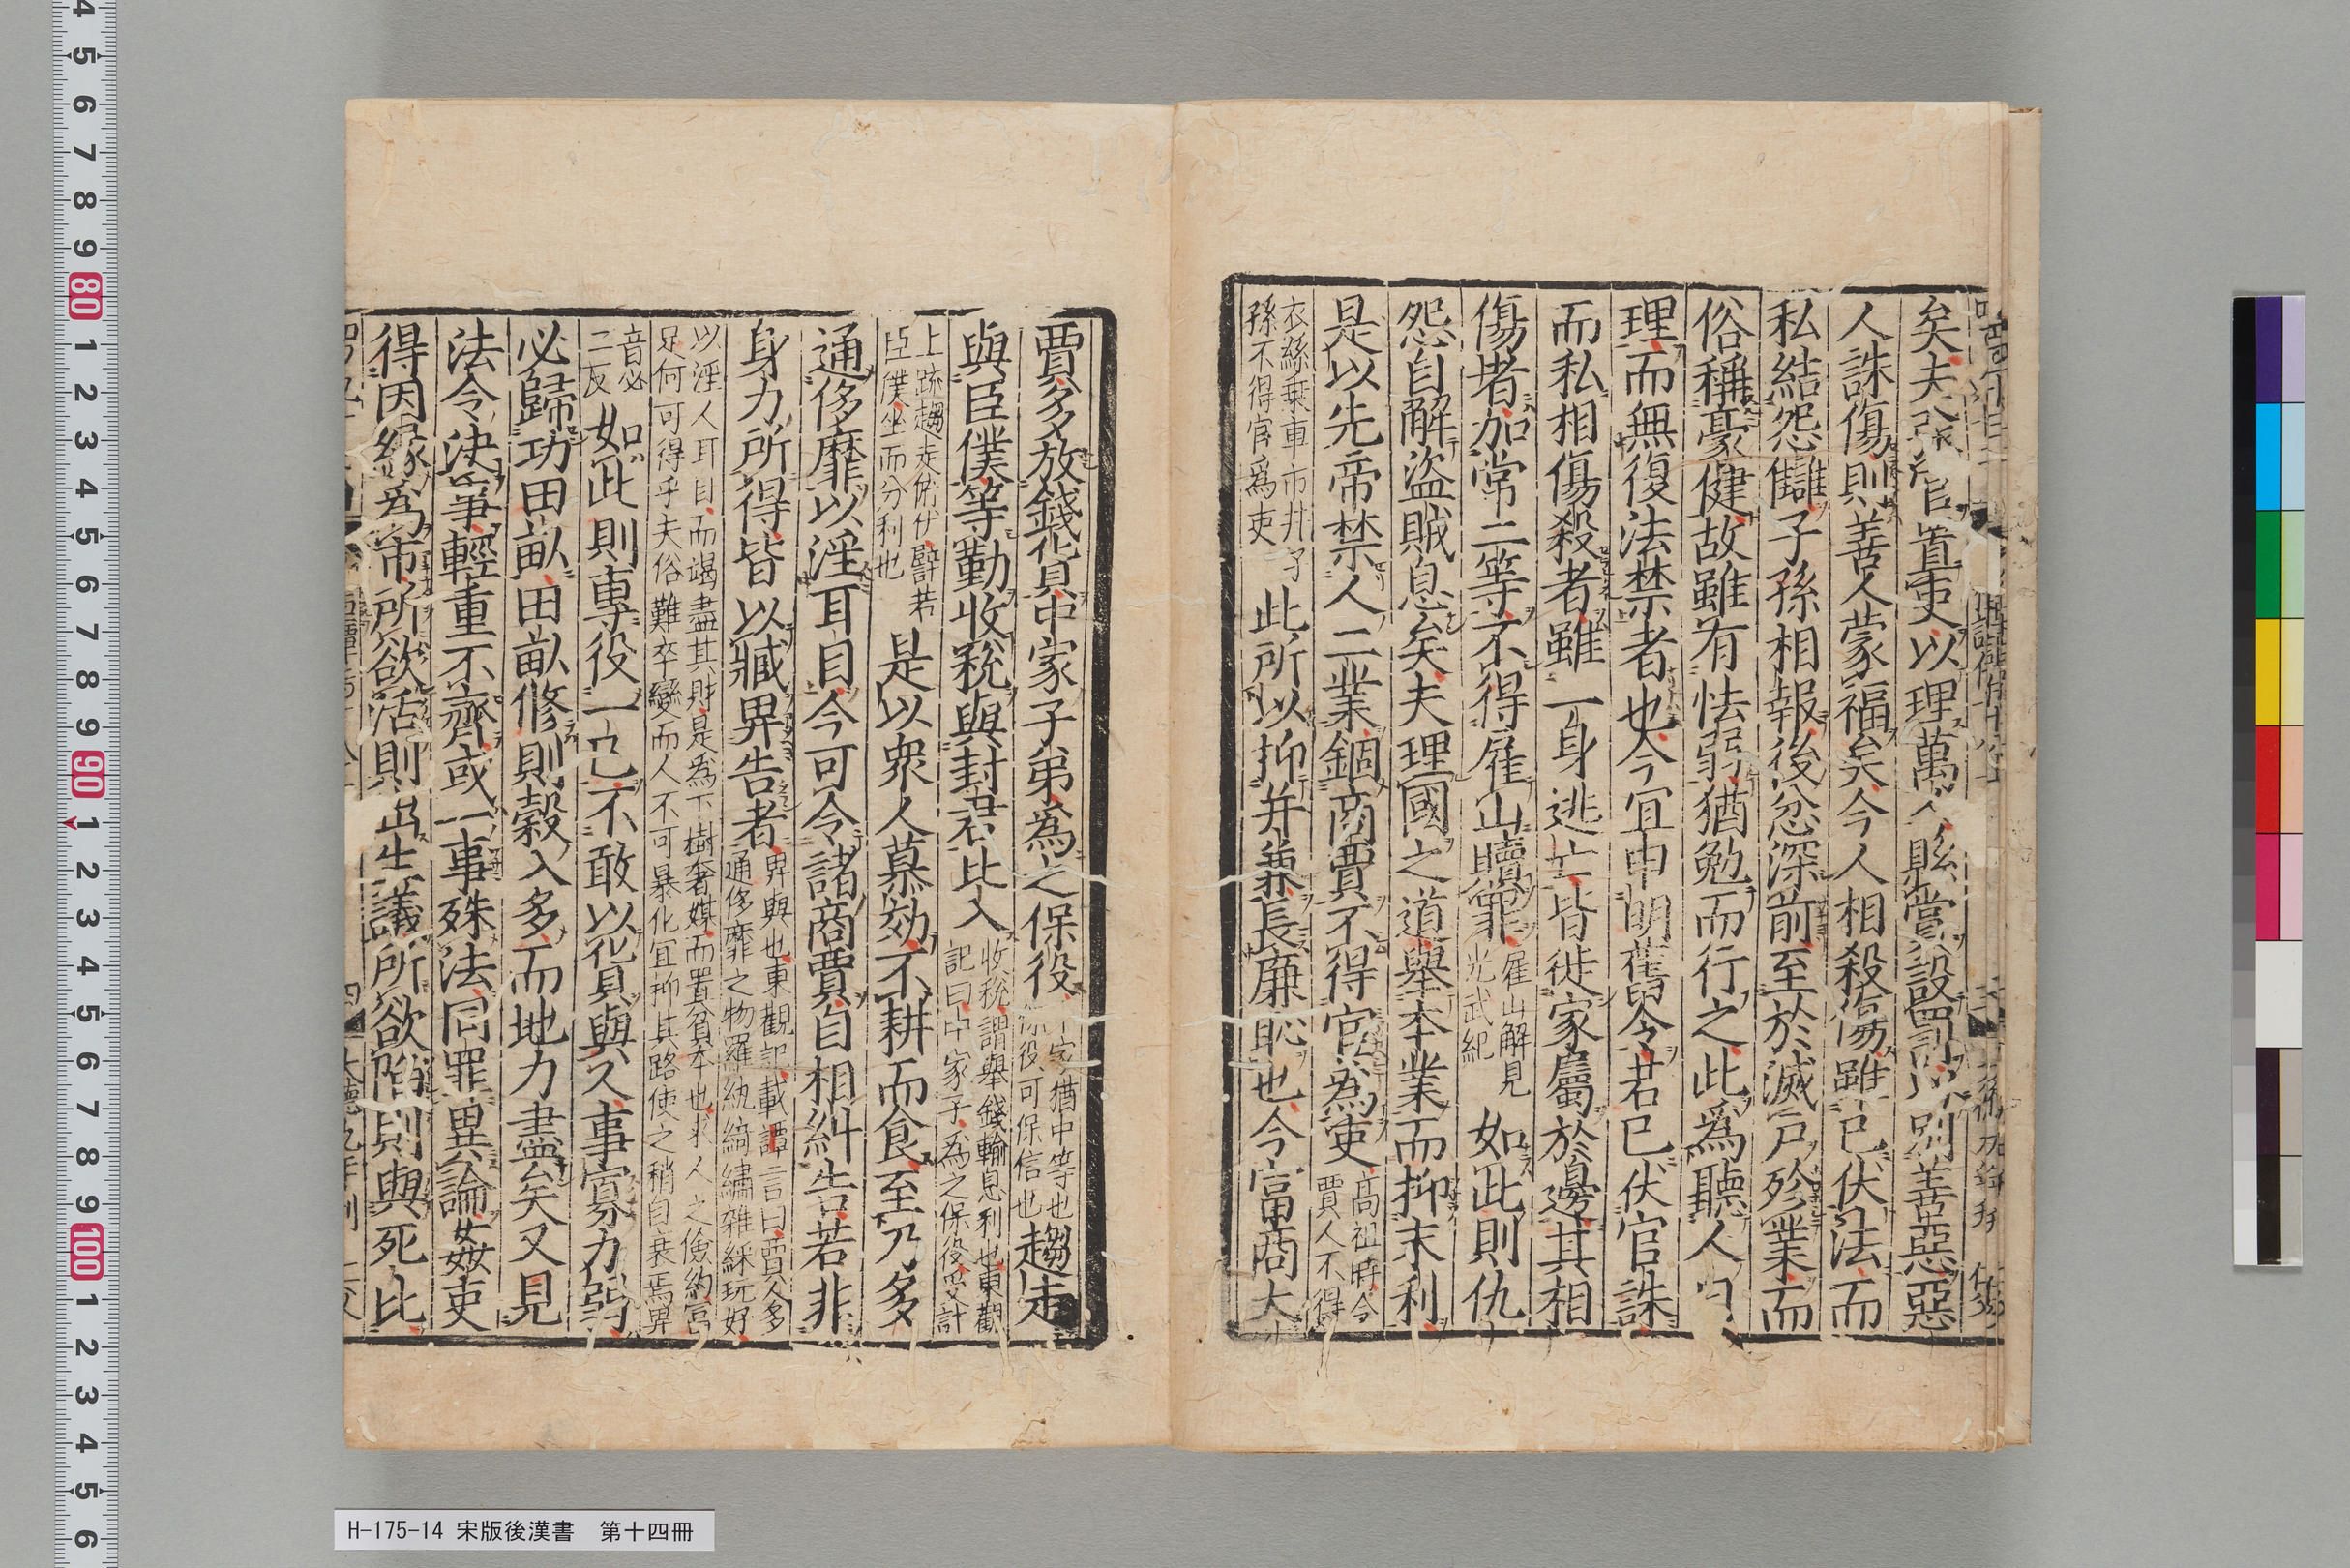 矣夫張官置吏以理萬人縣賞設罰以別善惡惡
人誅傷則善人蒙福矣今人相殺傷雖已伏法而
私結怨讎子孫相報後忿深前至於滅戶殄業而
俗稱豪健故雖有怯弱猶勉而行之此爲聽人自
理而無復法禁者也今宜申明舊令若已伏官誅
而私相傷殺者雖一身逃亡皆徙家屬於邊其相
傷者加常二等不得雇山贖罪雇山解見光武紀如此則仇
怨自解盜賊息矣夫理國之道舉本業而抑末利
是以先帝禁人二業錮商賈不得宦爲吏高祖時令賈人不得
衣絲乗車市井子孫不得官爲吏此所以抑并兼長廉恥也今富商大
賈多放錢貨中家子弟爲之保役中家猶中等也保役可保信也趨走
與臣僕等勤收稅與封君比入收稅謂舉錢輸息利也東觀記曰中家子爲之保役受計
上疏趨走俯伏譬若臣僕坐而分利也是以衆人慕効不耕而食至乃多
通侈靡以淫耳目今可令諸商賈自相糾告若非
身力所得皆以臧畀告者畀與也東觀記載譚言曰賈人多通侈靡之物羅紈綺繡雜綵玩好
以淫人耳目而竭盡其財是爲下樹奢媒而置貧本也求人之儉約富足何可得乎夫俗難卒變而人不可暴化宜抑其路使之稍自衰焉畀
音必二反如此則專役一己不敢以貨與人事寡力弱
必歸功田畝田畝修則穀入多而地力盡矣又見
法令決事輕重不齊或一事殊法同罪異論姦吏
得因緣爲市所欲活則出生議所欲陷則與死比
大德九年刊
H-175-14 宋版後漢書　第十四冊